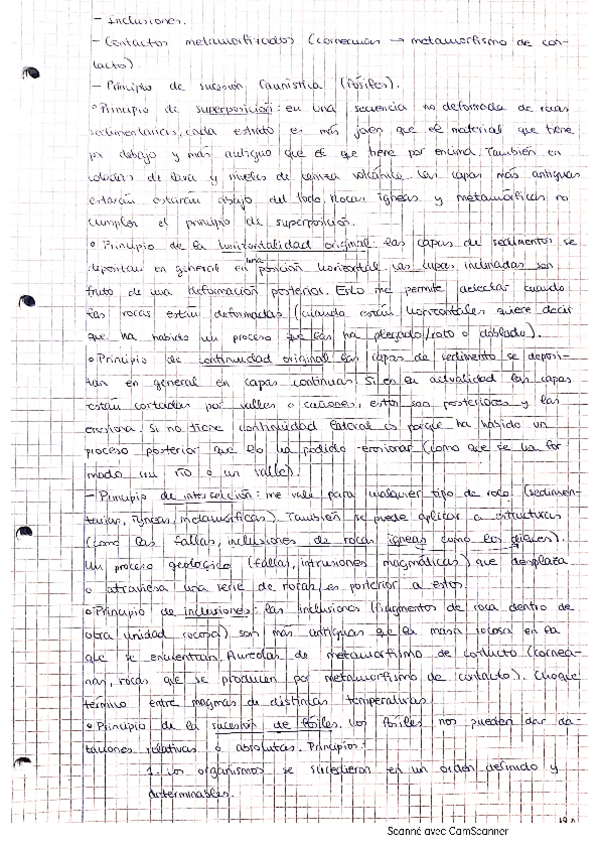 - Inclusiones.
- Contactos metamorfizados (corneanas → metamorfismo de con-
tacto)
- Principio de sucesión faunística (fósiles).
• Principio de superposición: en una secuencia no deformada de rocas
sedimentarias, cada estrato es más joven que el material que tiene
por debajo y más antiguo que el que tiene por encima. También en
coladas de lava y niveles de ceniza volcánica. Las capas más antiguas
estarán estarán abajo del todo. Rocas ígneas y metamórficas no
cumplen el principio de superposición.
• Principio de la horizontalidad original: las capas de sedimentos se
depositan en general en una posición horizontal. Las capas inclinadas son
fruto de una deformación posterior. Esto me permite detectar cuando
las rocas están deformadas (cuando están horizontales quiere decir
que ha habido un proceso que las ha plegado/roto o doblado).
• Principio de continuidad original: las capas de sedimento se deposi-
tan en general en capas continuas. Si en la actualidad las capas
están cortadas por valles o cañones, estos son posteriores y las
erosiona. Si no tiene continuidad lateral es porque ha habido un
proceso posterior que lo ha podido erosionar (como que se ha for
mado un río o un valle).
- Principio de intersección: me vale para cualquier tipo de roca (sedimen-
tarias, ígneas, metamórficas). También se puede aplicar a estructuras
(como las fallas, inclusiones de rocas ígneas como los diques).
Un proceso geológico (fallas, intrusiones magmáticas) que desplaza
o atraviesa una serie de rocas, es posterior a estos.
• Principio de inclusiones: las inclusiones (fragmentos de roca dentro de
otra unidad rocosa) son más antiguas que la masa rocosa en la
que se encuentran. Aureolas de metamorfismo de contacto (cornea-
nas, rocas que se producen por metamorfismo de contacto). Choque
térmico entre magmas de distintas temperaturas.
• Principio de la sucesión de fósiles. Los fósiles nos pueden dar da-
taciones relativas o absolutas. Principios:
1. Los organismos se sucedieron en un orden definido y
determinables.
Scanné avec CamScanner